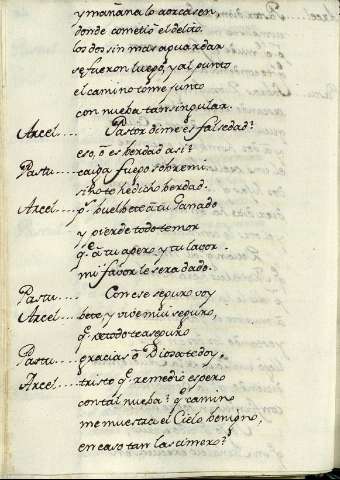 y mañana lo aorcasen,
donde cometio el delito.
los dos sin mas aguardar
se fueron luego, y al punto
el camino tome junto
con nueba tan singular.
Arcel.... Pastor dime es falsedad?
eso, ō es berdad asi?
Pastu.... caiga fuego sobre mi
si no te he dicho berdad.
Arcel.... ps buelbete a tu ganado
y pierde todo temor
q̄ a tu apero, y tu labor
mi fabor le sera dado.
Pastu.... Con ese seguro voy
Arcel.... bete, y vive mui seguro,
q̄ de todo te aseguro
Pastu.... gracias ō Dios a te doy.
Arcel.... triste q̄ remedio espero
con tal nueba? q̄ camino
me muestra el Cielo benigno,
en caso tan lastimero?